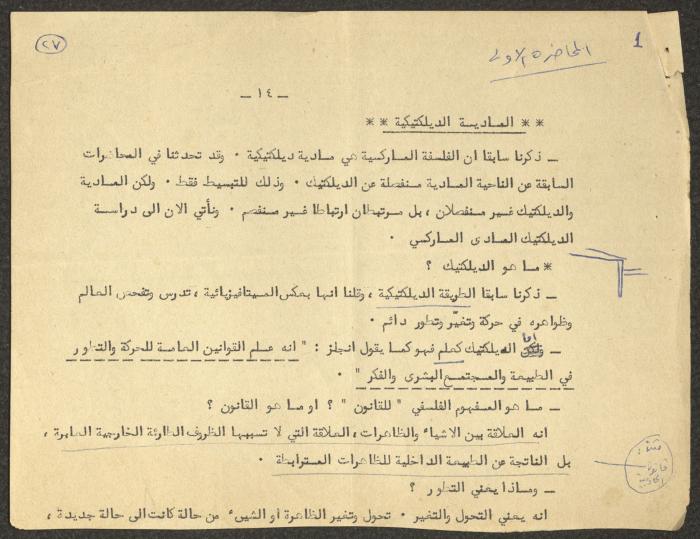 ٢٧
1
المحاضرة الاولى
ـ ١٤ ـ
** الماديـة الديلكتيكية **
ـ ذكرنا سابقا ان الفلسفة الماركسية هي مادية ديلكتيكية ٠ وقد تحدثنا في المحاضرات
السابقة عن الناحية المادية منفصلة عن الديلكتيك ٠ وذلك للتبسيط فقط ٠ ولكن المادية
والديلكتيك غير منفصلان ، بل مرتبطان ارتباطا غير منفصم ٠ ونأتي الان الى دراسة
الديلكتيك المادى الماركسي ٠
* ما هو الديلكتيك ؟
ـ ذكرنا سابقا الطريقة الديلكتيكية ، وقلنا انها بعكس الميتافيزيائية ، تدرس وتفحص العالم
وظواهره في حركة وتغيّر وتطور دائم ٠
ـ اما الديلكتيك كعلم فهو كما يقول انجلز : " انه علم القوانين العامة للحركة والتطور
في الطبيعة والمجتمع البشرى والفكر " ٠
ـ ما هو المفهوم الفلسفي " للقانون " ؟ او ما هو القانون ؟
انه العلاقة بين الاشياء والظاهرات ، العلاقة التي لا تسببها الظروف الطارئة الخارجية العابرة ،
بل الناتجة عن الطبيعة الداخلية للظاهرات المترابطة ٠
ـ وماذا يعني التطور ؟
انه يعني التحول والتغير ٠ تحول وتغير الظاهرة أو الشيء من حالة كانت الى حالة جديدة ،